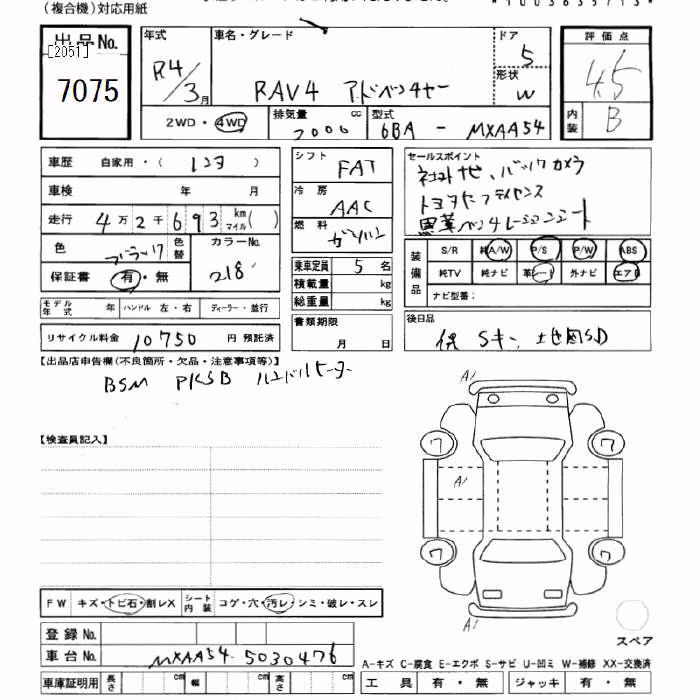 （複合機）対応用紙
*1003635713*
出品No.
[2051]
7075
年式
R4/3月
車名・グレード
RAV4 アドベンチャー
ドア
5
形状
W
評価点
4.5
内装
B
2WD・4WD
排気量 2000 cc
型式 6BA - MXAA54
車歴 自家用・( レンタ )
車検 年 月
走行 4万2千693 km マイル( )
色 ブラック 色替
カラーNo. 218
保証書 有・無
シフト FAT
冷房 AAC
燃料 ガソリン
乗車定員 5名
積載量 kg
総重量 kg
書類期限
月 日
セールスポイント
社外ナビ、バックカメラ
トヨタセーフティセンス
黒革ベンチレーションシート
装備品
S/R 純A/W P/S P/W ABS
純TV 純ナビ 革シート 外ナビ エアB
ナビ型番：
後日品
保 Sキー、地図SD
モデル年式 年 ハンドル 左・右 ディーラー・並行
リサイクル料金 10750 円 預託済
【出品店申告欄（不良箇所・欠品・注意事項等）】
BSM PKSB ハンドルヒーター
【検査員記入】
A1
ワ ワ
A1
ワ ワ
A1
スペア
FW キズ・トビ石・割レX シート内装 コゲ・穴・汚レ・シミ・破レ・スレ
登録No.
車台No. MXAA54-5030476
車庫証明用 長さ cm 幅 cm 高さ cm
A-キズ C-腐食 E-エクボ S-サビ U-凹ミ W-補修 XX-交換済
工具 有・無 ジャッキ 有・無